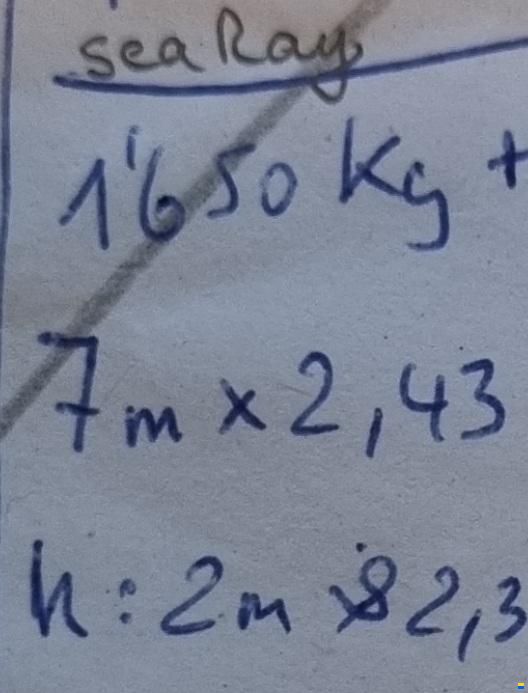 sea Ray
1'650 Kg +
7m x 2,43
h: 2m 2,3